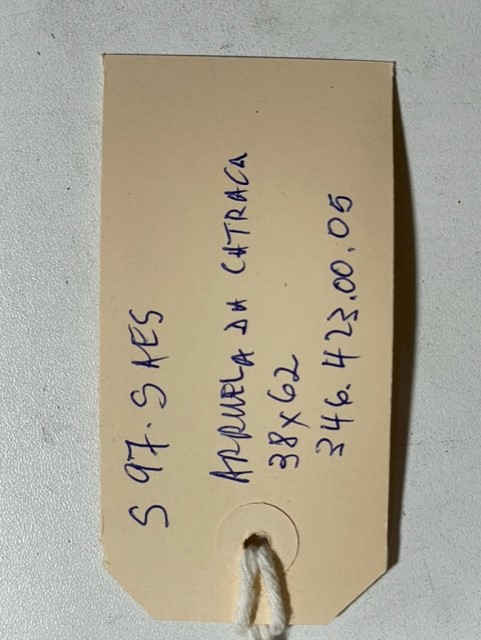 S 97. SAES
ARRUELA DA CATRACA
38X62
346.423.00.05